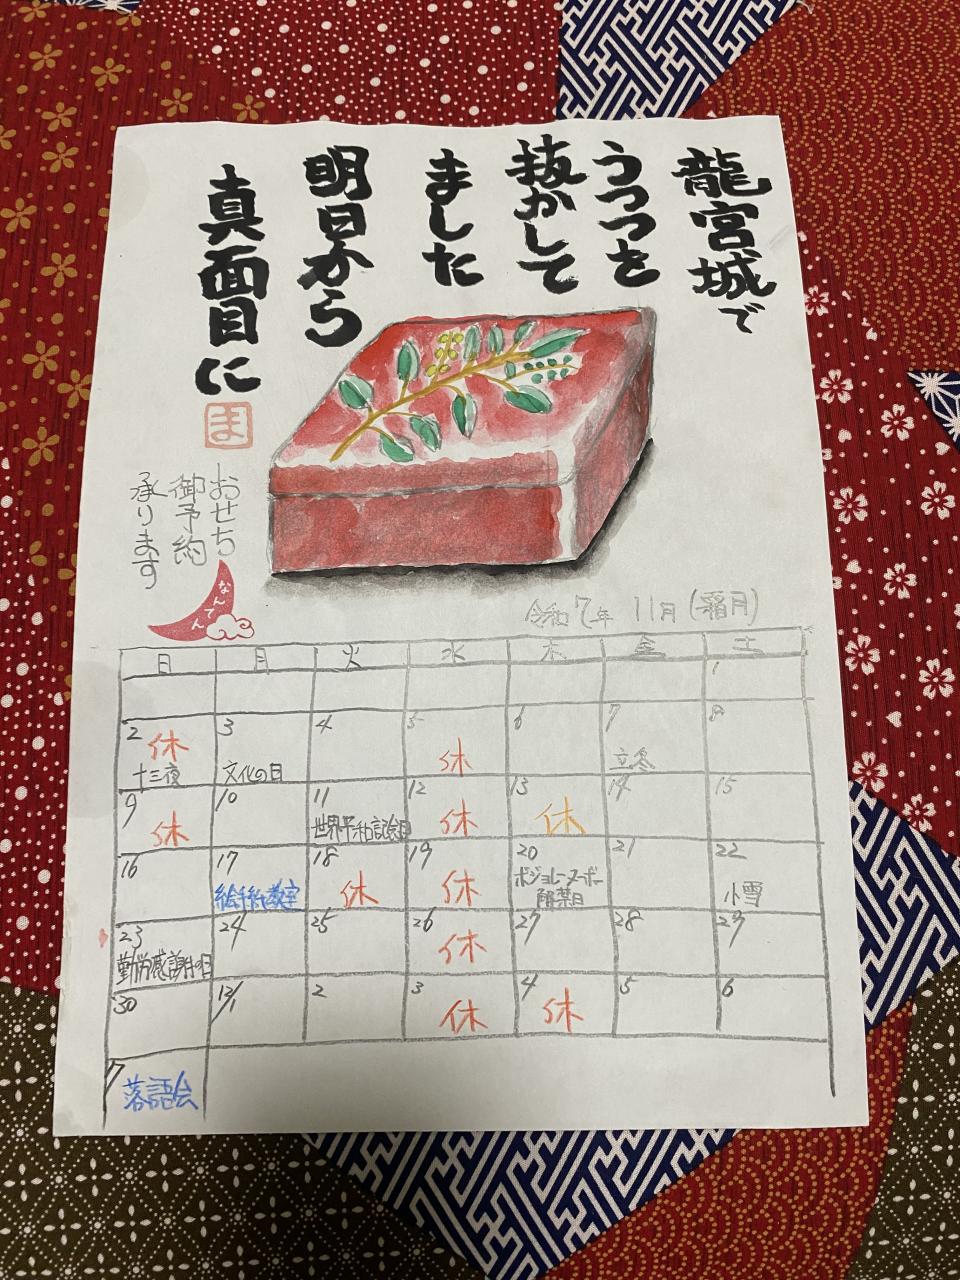 龍宮城で
うつつを
抜かして
ました
明日から
真面目に
ま
おせち
御予約
承ります
なんてん
令和7年 11月(霜月)
日 月 火 水 木 金 土
1
2 3 4 5 6 7 8
休 休
十三夜 文化の日 立冬
9 10 11 12 13 14 15
休 世界平和記念日 休 休
16 17 18 19 20 21 22
絵手紙教室 休 休 ボジョレーヌーボー 小雪
解禁日
23 24 25 26 27 28 29
勤労感謝の日 休
30 12/1 2 3 4 5 6
休 休
7
落語会